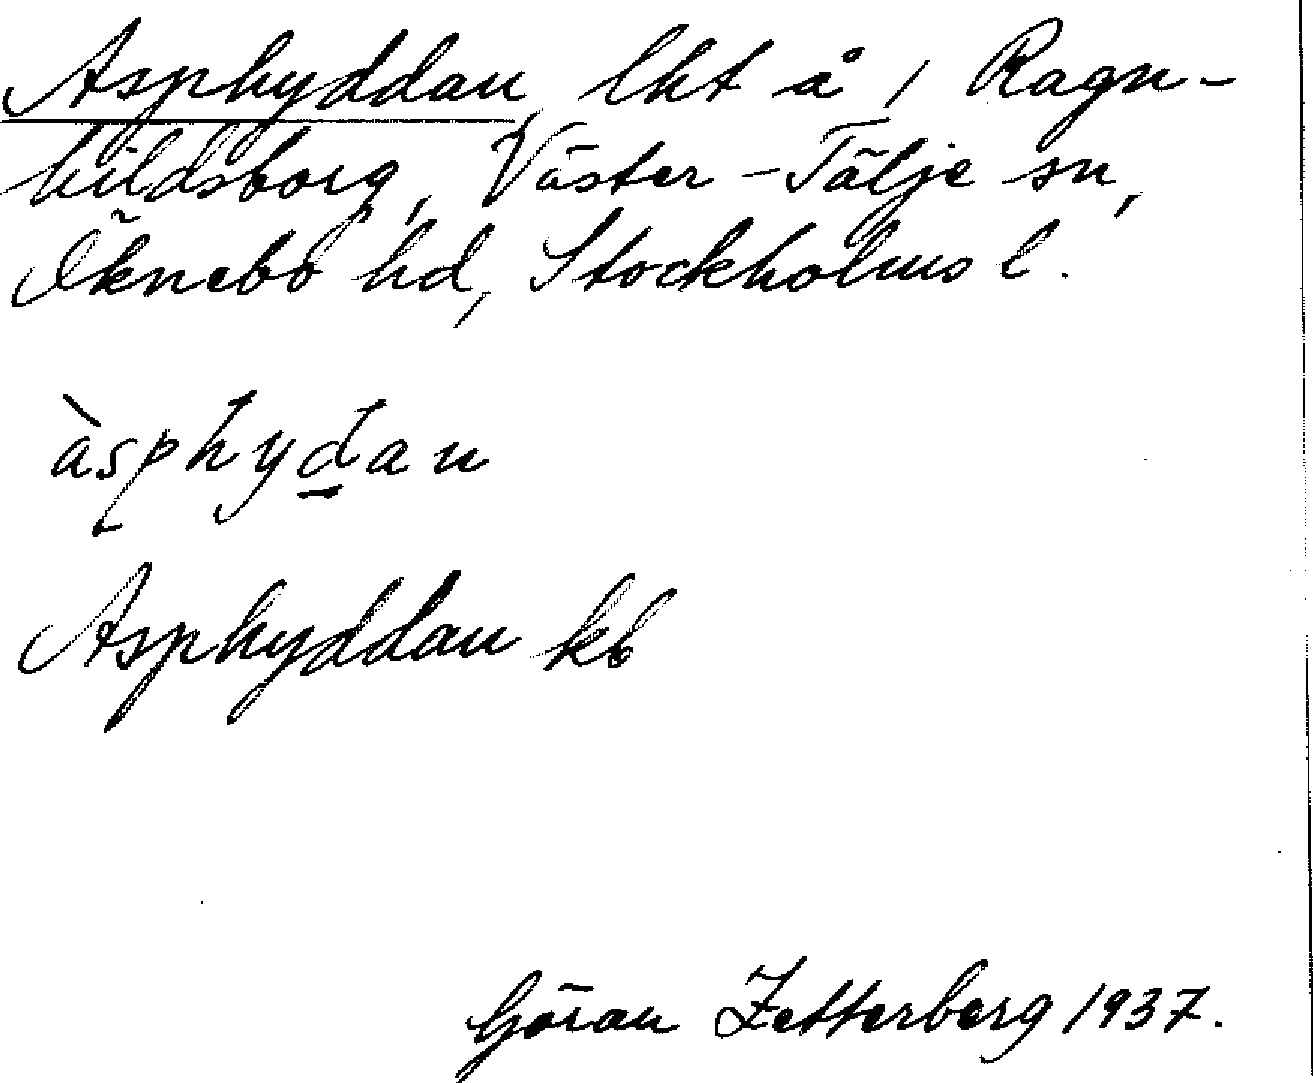 Asphyddan, lht å 1 Ragn-
hildsborg, Väster-Tälje sn,
Öknebo hd, Stockholms l.
àsphyd̲an
Asphyddan kb
Göran Zetterberg 1937.